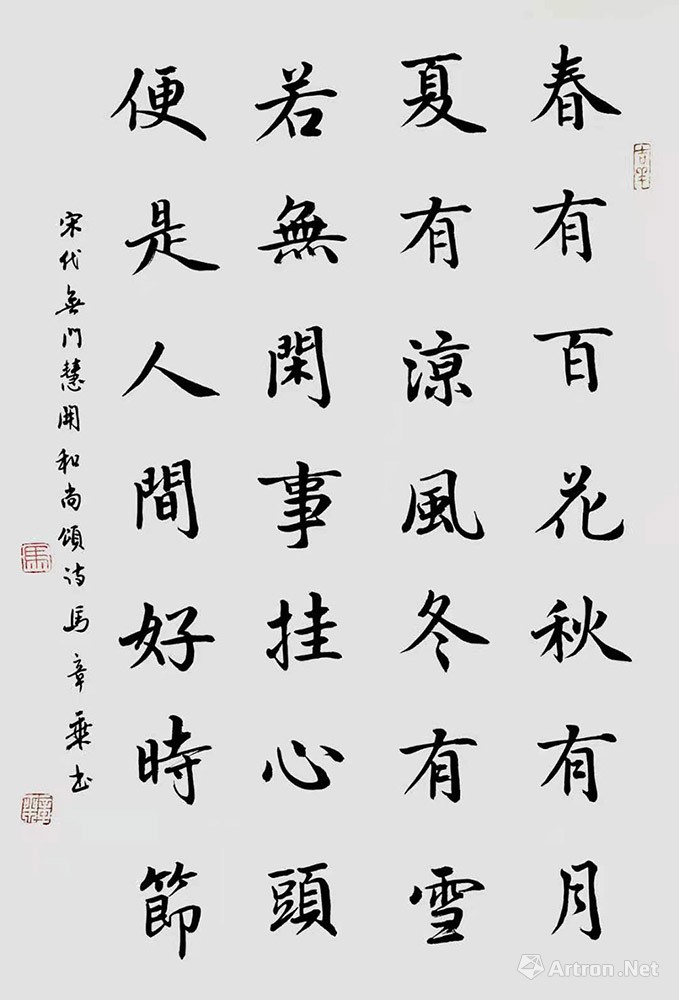 春有百花秋有月
夏有涼風冬有雪
若無閑事挂心頭
便是人間好時節
宋代無門慧開和尚頌詩馬章乘书
吉羊
馬
Artron.Net